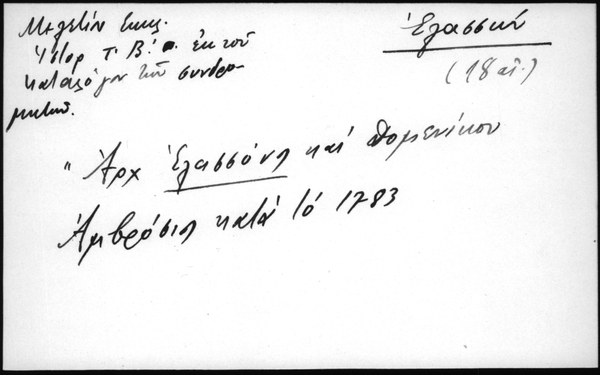 Μελετίου Εκκλ.
Ἱστορ Τ. Β΄. ἐκ τοῦ
καταλόγου τῶν συνδρο-
μητῶν.
Ἐλασσών
(18 αἰ.)
" Ἀρχ Ἐλασσόνος καὶ Δομενίκου
Ἀμβρόσιος κατὰ τό 1783